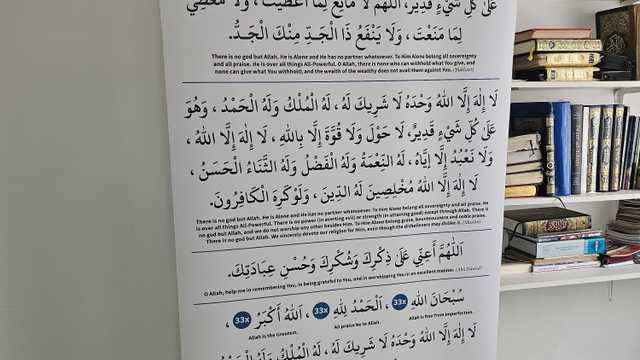 عَلَىٰ كُلِّ شَيْءٍ قَدِيرٌ، اَللّٰهُمَّ لَا مَانِعَ لِمَا أَعْطَيْتَ، وَلَا مُعْطِيَ
لِمَا مَنَعْتَ، وَلَا يَنْفَعُ ذَا الْجَدِّ مِنْكَ الْجَدُّ.
There is no god but Allah. He is Alone and He has no partner whatsoever. To Him Alone belong all sovereignty
and all praise. He is over all things All-Powerful. O Allah, there is none who can withhold what You give, and
none can give what You withhold; and the wealth of the wealthy does not avail them against You. (Muslim)
لَا إِلٰهَ إِلَّا اللهُ وَحْدَهُ لَا شَرِيكَ لَهُ، لَهُ الْمُلْكُ وَلَهُ الْحَمْدُ، وَهُوَ
عَلَىٰ كُلِّ شَيْءٍ قَدِيرٌ، لَا حَوْلَ وَلَا قُوَّةَ إِلَّا بِاللهِ، لَا إِلٰهَ إِلَّا اللهُ،
وَلَا نَعْبُدُ إِلَّا إِيَّاهُ، لَهُ النِّعْمَةُ وَلَهُ الْفَضْلُ وَلَهُ الثَّنَاءُ الْحَسَنُ،
لَا إِلٰهَ إِلَّا اللهُ مُخْلِصِينَ لَهُ الدِّينَ، وَلَوْ كَرِهَ الْكَافِرُونَ.
There is no god but Allah. He is Alone and He has no partner whatsoever. To Him Alone belong all sovereignty and all praise. He
is over all things All-Powerful. There is no power (in averting evil) or strength (in attaining good) except through Allah. There is
no god but Allah, and we do not worship any other besides Him. To Him Alone belong grace, bounteousness and noble praise.
There is no god but Allah. We sincerely devote our religion for Him, even though the disbelievers may dislike it. (Muslim)
اَللّٰهُمَّ أَعِنِّي عَلَىٰ ذِكْرِكَ وَشُكْرِكَ وَحُسْنِ عِبَادَتِكَ.
O Allah, help me in remembering You, in being grateful to You, and in worshipping You in an excellent manner.
سُبْحَانَ اللهِ 33x ، اَلْحَمْدُ لِلّٰهِ 33x ، اَللهُ أَكْبَرُ 33x ،
Allah is free from imperfection. All praise be to Allah. Allah is the Greatest.
لَا إِلٰهَ إِلَّا اللهُ وَحْدَهُ لَا شَرِيكَ لَهُ، لَهُ الْمُلْكُ وَلَهُ الْحَمْدُ